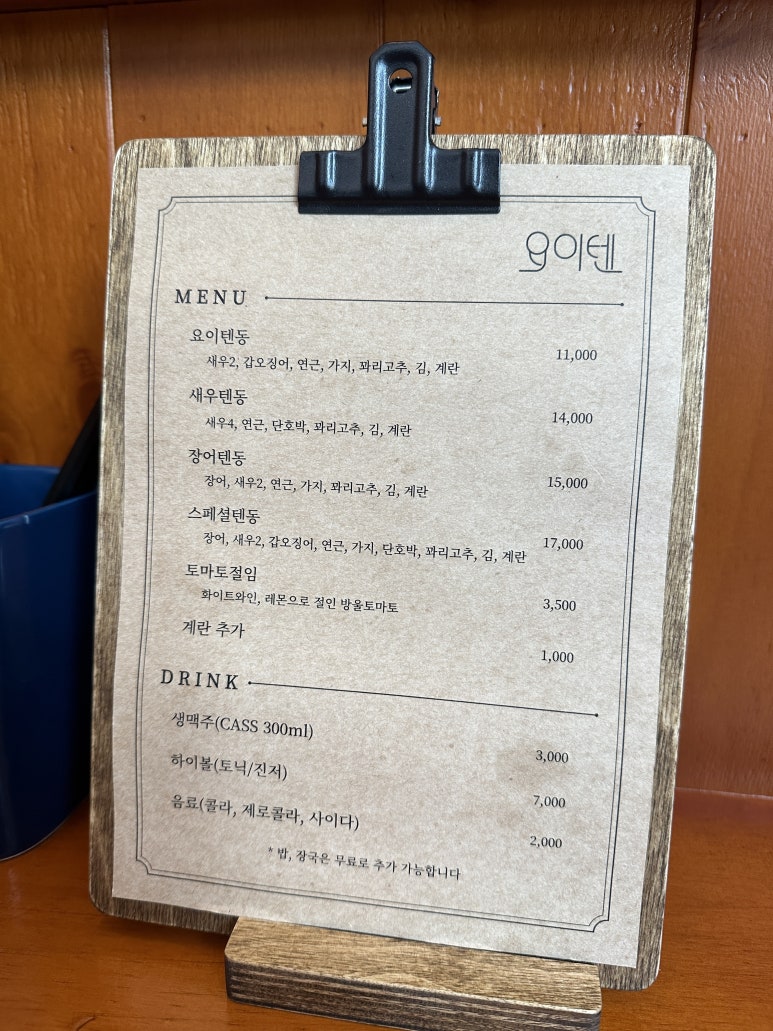 요이텐
MENU
요이텐동
새우2, 갑오징어, 연근, 가지, 꽈리고추, 김, 계란
11,000
새우텐동
새우4, 연근, 단호박, 꽈리고추, 김, 계란
14,000
장어텐동
장어, 새우2, 연근, 가지, 꽈리고추, 김, 계란
15,000
스페셜텐동
장어, 새우2, 갑오징어, 연근, 가지, 단호박, 꽈리고추, 김, 계란
17,000
토마토절임
화이트와인, 레몬으로 절인 방울토마토
3,500
계란 추가
1,000
DRINK
생맥주(CASS 300ml)
3,000
하이볼(토닉/진저)
7,000
음료(콜라, 제로콜라, 사이다)
2,000
* 밥, 장국은 무료로 추가 가능합니다